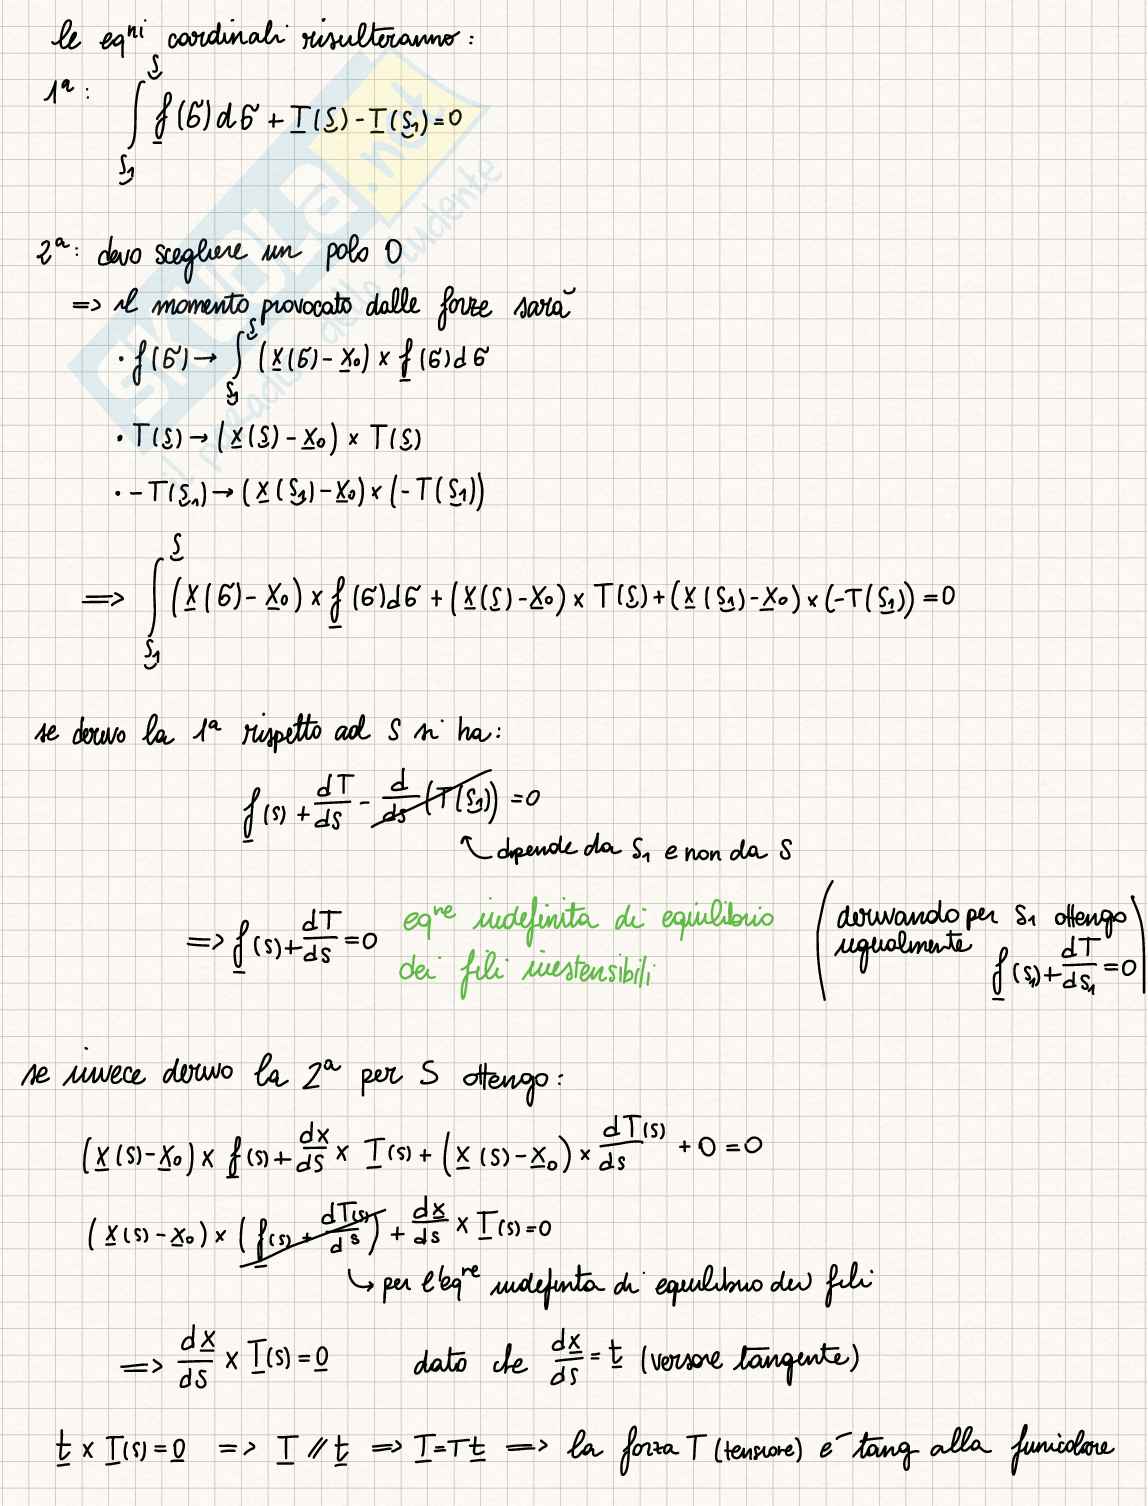 le eqⁿⁱ cardinali risulteranno:
1ª: ∫_{S₁}^{S} f(σ)dσ + T(S) - T(S₁) = 0
2ª: devo scegliere un polo O
=> il momento provocato dalle forze sarà
• f(σ) → ∫_{S₁}^{S} (x(σ) - x₀) × f(σ)dσ
• T(S) → (x(S) - x₀) × T(S)
• - T(S₁) → (x(S₁) - x₀) × (-T(S₁))
=> ∫_{S₁}^{S} (x(σ) - x₀) × f(σ)dσ + (x(S) - x₀) × T(S) + (x(S₁) - x₀) × (-T(S₁)) = 0
se derivo la 1ª rispetto ad S si ha:
f(s) + dT/ds - d/ds (T(S₁)) = 0
dipende da S₁ e non da S
=> f(s) + dT/ds = 0 eqⁿᵉ indefinita di equilibrio
dei fili inestensibili
(derivando per S₁ ottengo
ugualmente
f(s₁) + dT/ds₁ = 0)
se invece derivo la 2ª per S ottengo:
(x(s) - x₀) × f(s) + dx/ds × T(s) + (x(s) - x₀) × dT(s)/ds + 0 = 0
(x(s) - x₀) × (f(s) + dT(s)/ds) + dx/ds × T(s) = 0
per l'eqⁿᵉ indefinta di equilibrio dei fili
=> dx/ds × T(s) = 0 dato che dx/ds = t (versore tangente)
t × T(s) = 0 => T // t => T = T t => la forza T (tensione) è tang alla funicolare
SKUOLA.net
il paradiso dello studente